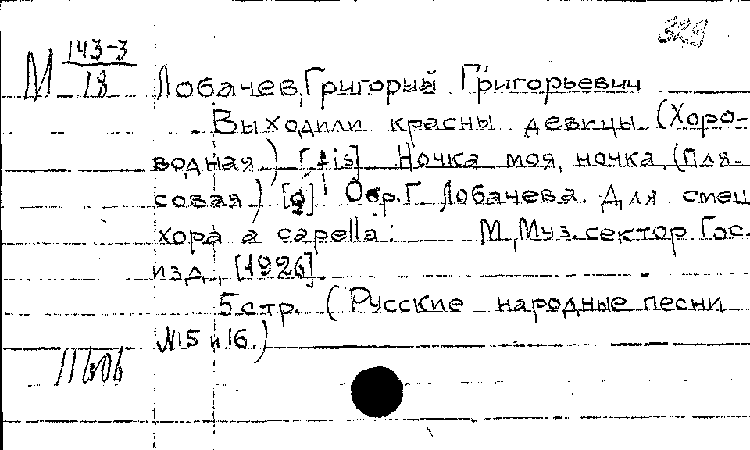 329
М 143-3/18
Лобачев, Григорий Григорьевич
Выходили красны девицы. (Хоро-
водная) [fis]. Ночка моя, ночка. (Пля
совая) [g]. Обр. Г. Лобачева. Для смеш
хора a capella. М., Муз. сектор Гос.
изд., [1926].
5 стр. (Русские народные песни
№15 и 16.)
11606